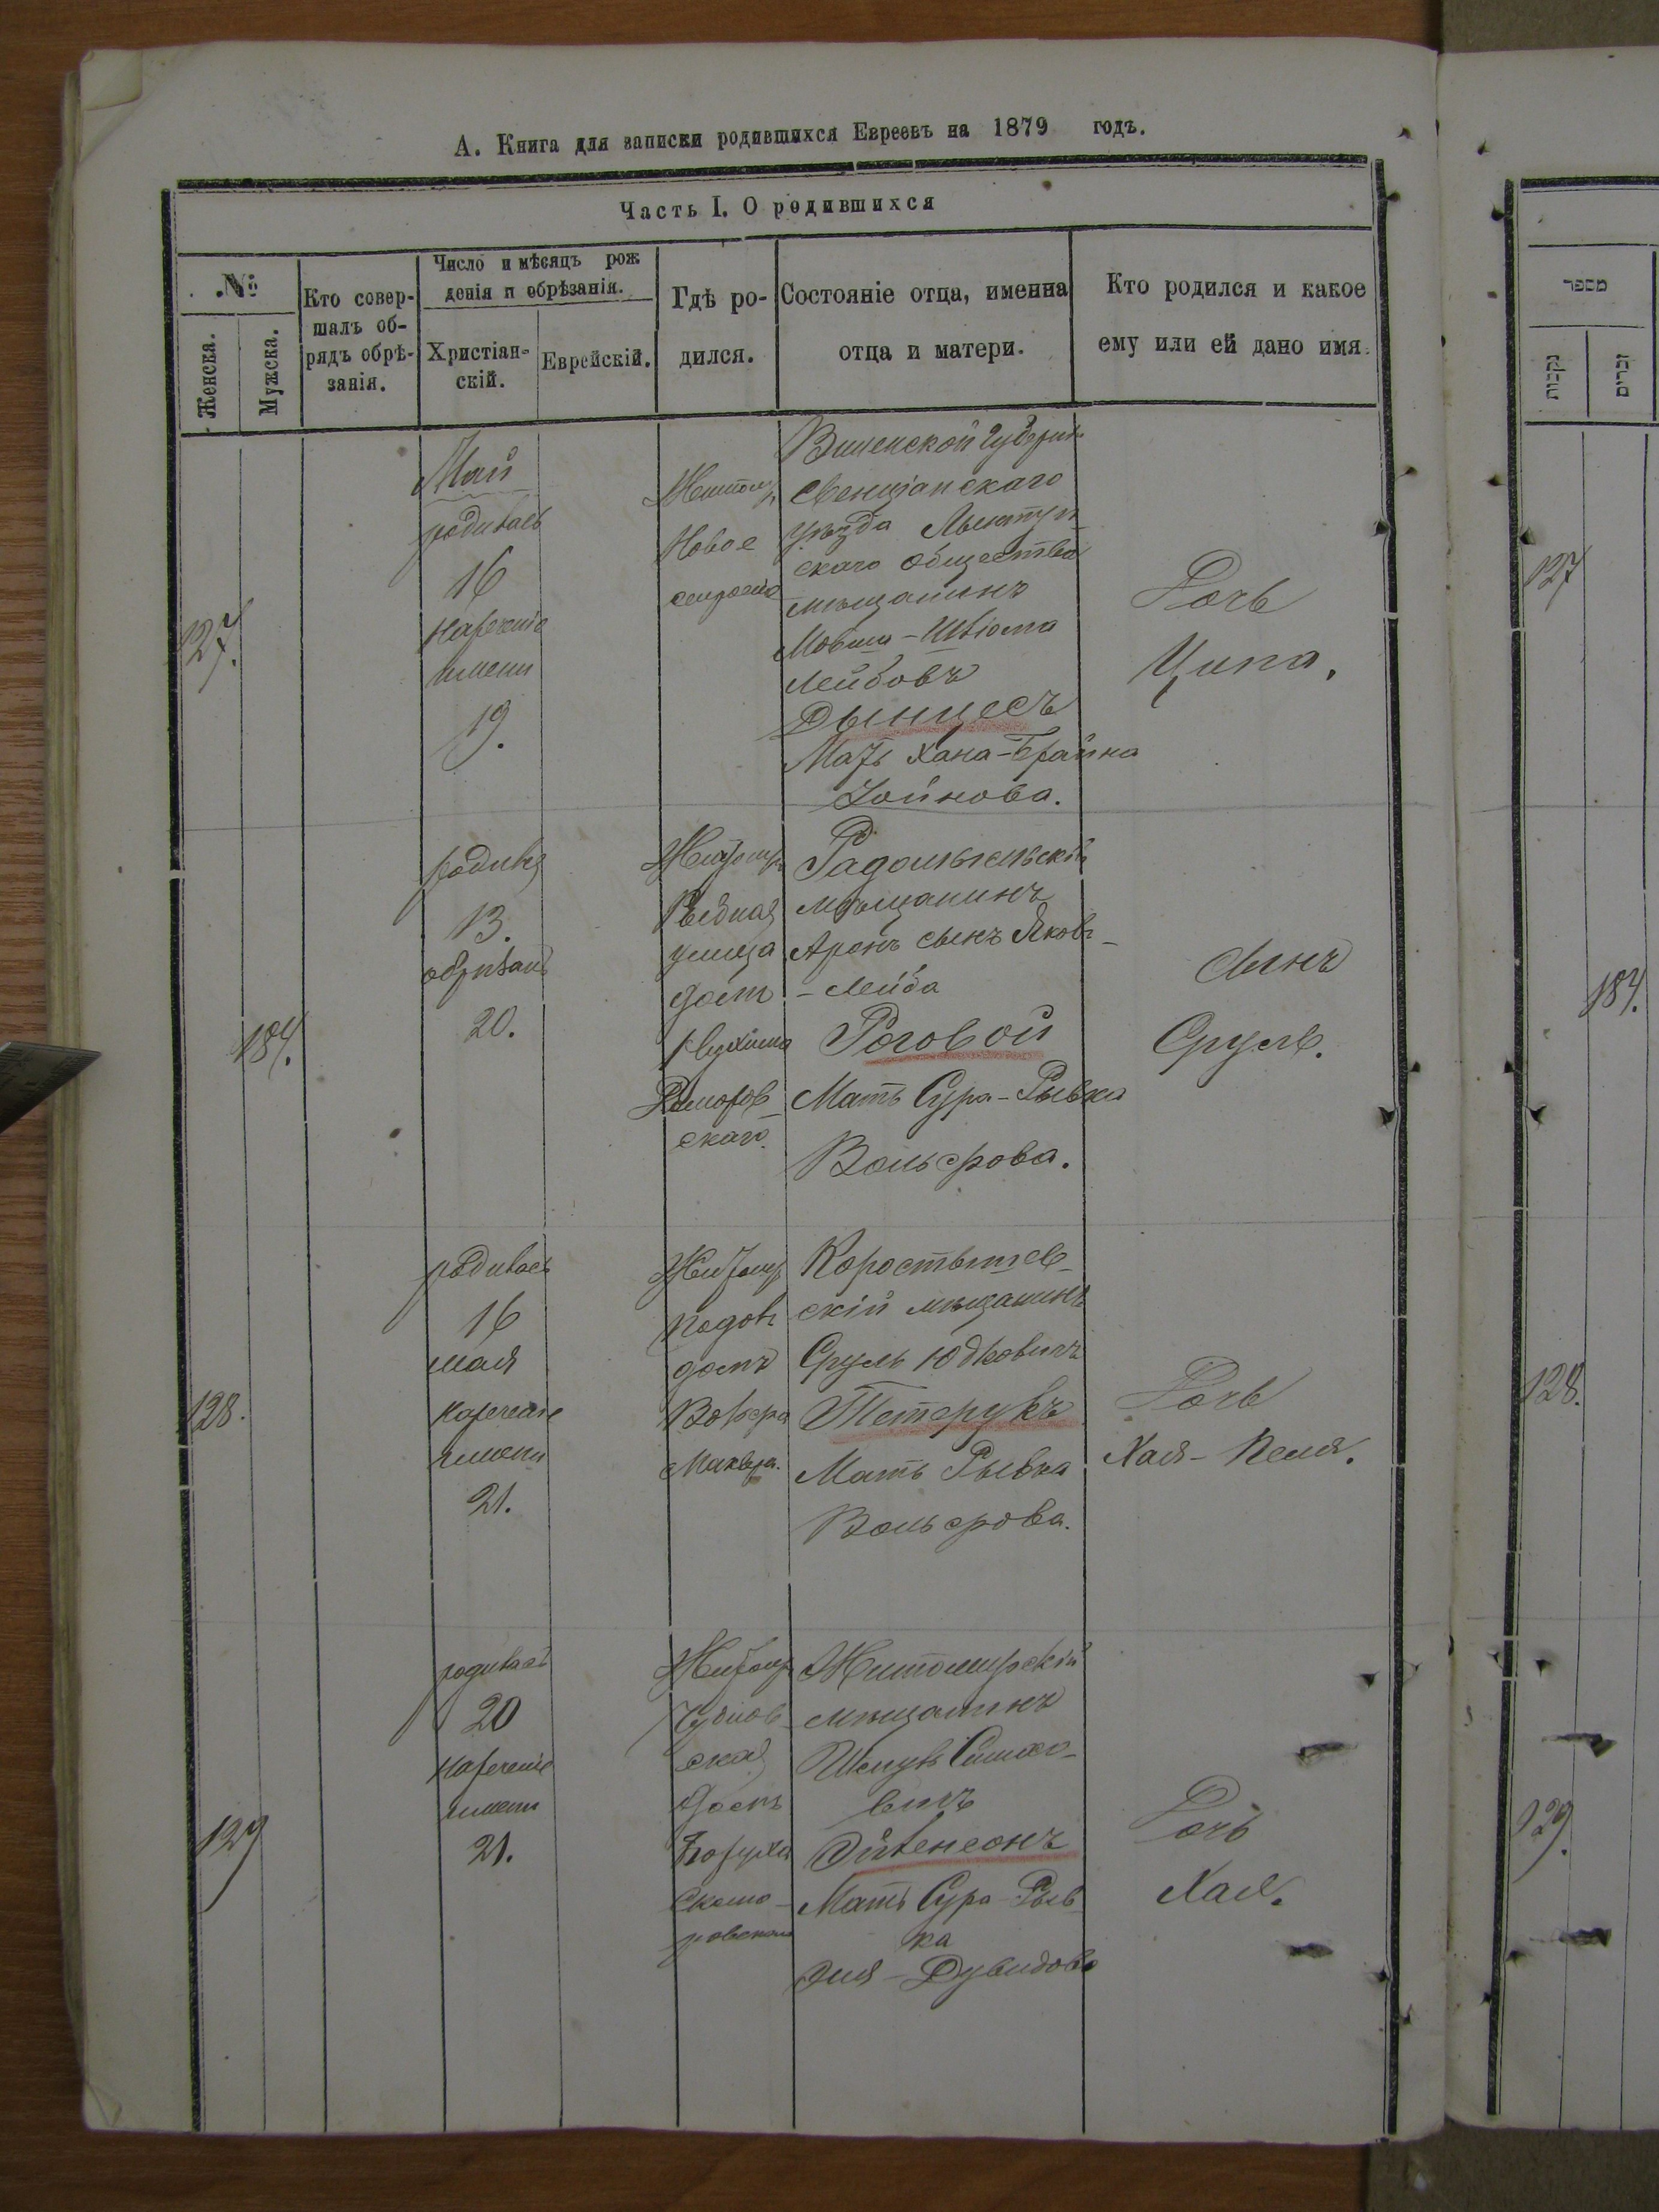 А. Книга для записки родившихся Евреевъ на 1879 годъ.
Часть I. О родившихся
№
Женска.
Мужска.
Кто совер-
шалъ об-
рядъ обрѣ-
занія.
Число и мѣсяцъ рож
денія п обрѣзанія.
Христіан-
скій.
Еврейскій.
Гдѣ ро-
дился.
Состояніе отца, именна
отца и матери.
Кто родился и какое
ему или ей дано имя.
מספר
נקבות
זכרים
127.
Май
родилась
16
нареченіе
имени
19.
Житомир
Новое
строеніе
Виленской губерніи
Свенціанскаго
уѣзда
скаго общества
мѣщанинъ
Мовша-
Лейбовъ
Дынцесъ
Мать Хана-Брайна
Зойнова.
Дочь
Ципа.
127
184.
родился
13.
обрѣзанъ
20.
Житомиръ
улица
домъ
скаго
Радомысльскій
мѣщанинъ
Аронъ сынъ Яковъ-
-Лейба
Роговой
Мать Сура-Рывка
Вольфова.
Сынъ
Сруль.
184.
128.
родилась
16
мая
нареченіе
имени
21.
Житомир
домъ
Коростышев-
скій мѣщанинъ
Сруль Юдковичъ
Тетерукъ
Мать Рывка
Вольфова.
Дочь
Хая-Песя.
128.
129
родилась
20
нареченіе
имени
21.
Житомир
Чуднов-
ская
домъ
Боруха
Скомо-
ровскаго
Житомирскій
мѣщанинъ
Шмуль Симхо-
вичъ
Эйденсонъ
Мать Сура-Рыв-
ка
Эля-Дувидова
Дочь
Хая.
129.